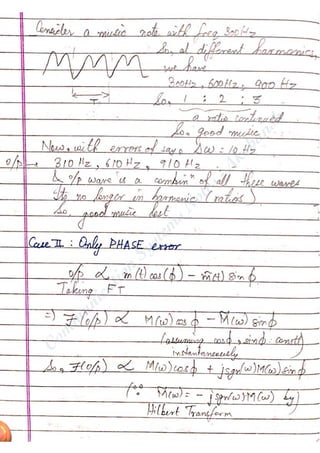 Consider a music note with freq 300Hz
So, at different harmonics,
we have
300Hz, 600Hz, 900 Hz
T
So, 1 : 2 : 3
a ratio continued
So, good music
Now, with errors of say a Δω = 10 Hz
o/p → 310 Hz, 610 Hz, 910 Hz
& o/p wave is a combinⁿ of all these waves
Its no longer in harmonic (ratios)
So, good music lost
Case II : Only PHASE error
o/p ∝ m(t)cos(ϕ) − m̂(t) Sinϕ
Taking FT
⇒ F(o/p) ∝ M(ω) cosϕ − M̂(ω) sinϕ
(assuming cosϕ, sinϕ constt)
instantaneously
So, F(o/p) ∝ M(ω)cosϕ + jsgn(ω)M(ω)sinϕ
(∵ M̂(ω) = −jsgn(ω)M(ω) by)
Hilbert Transform